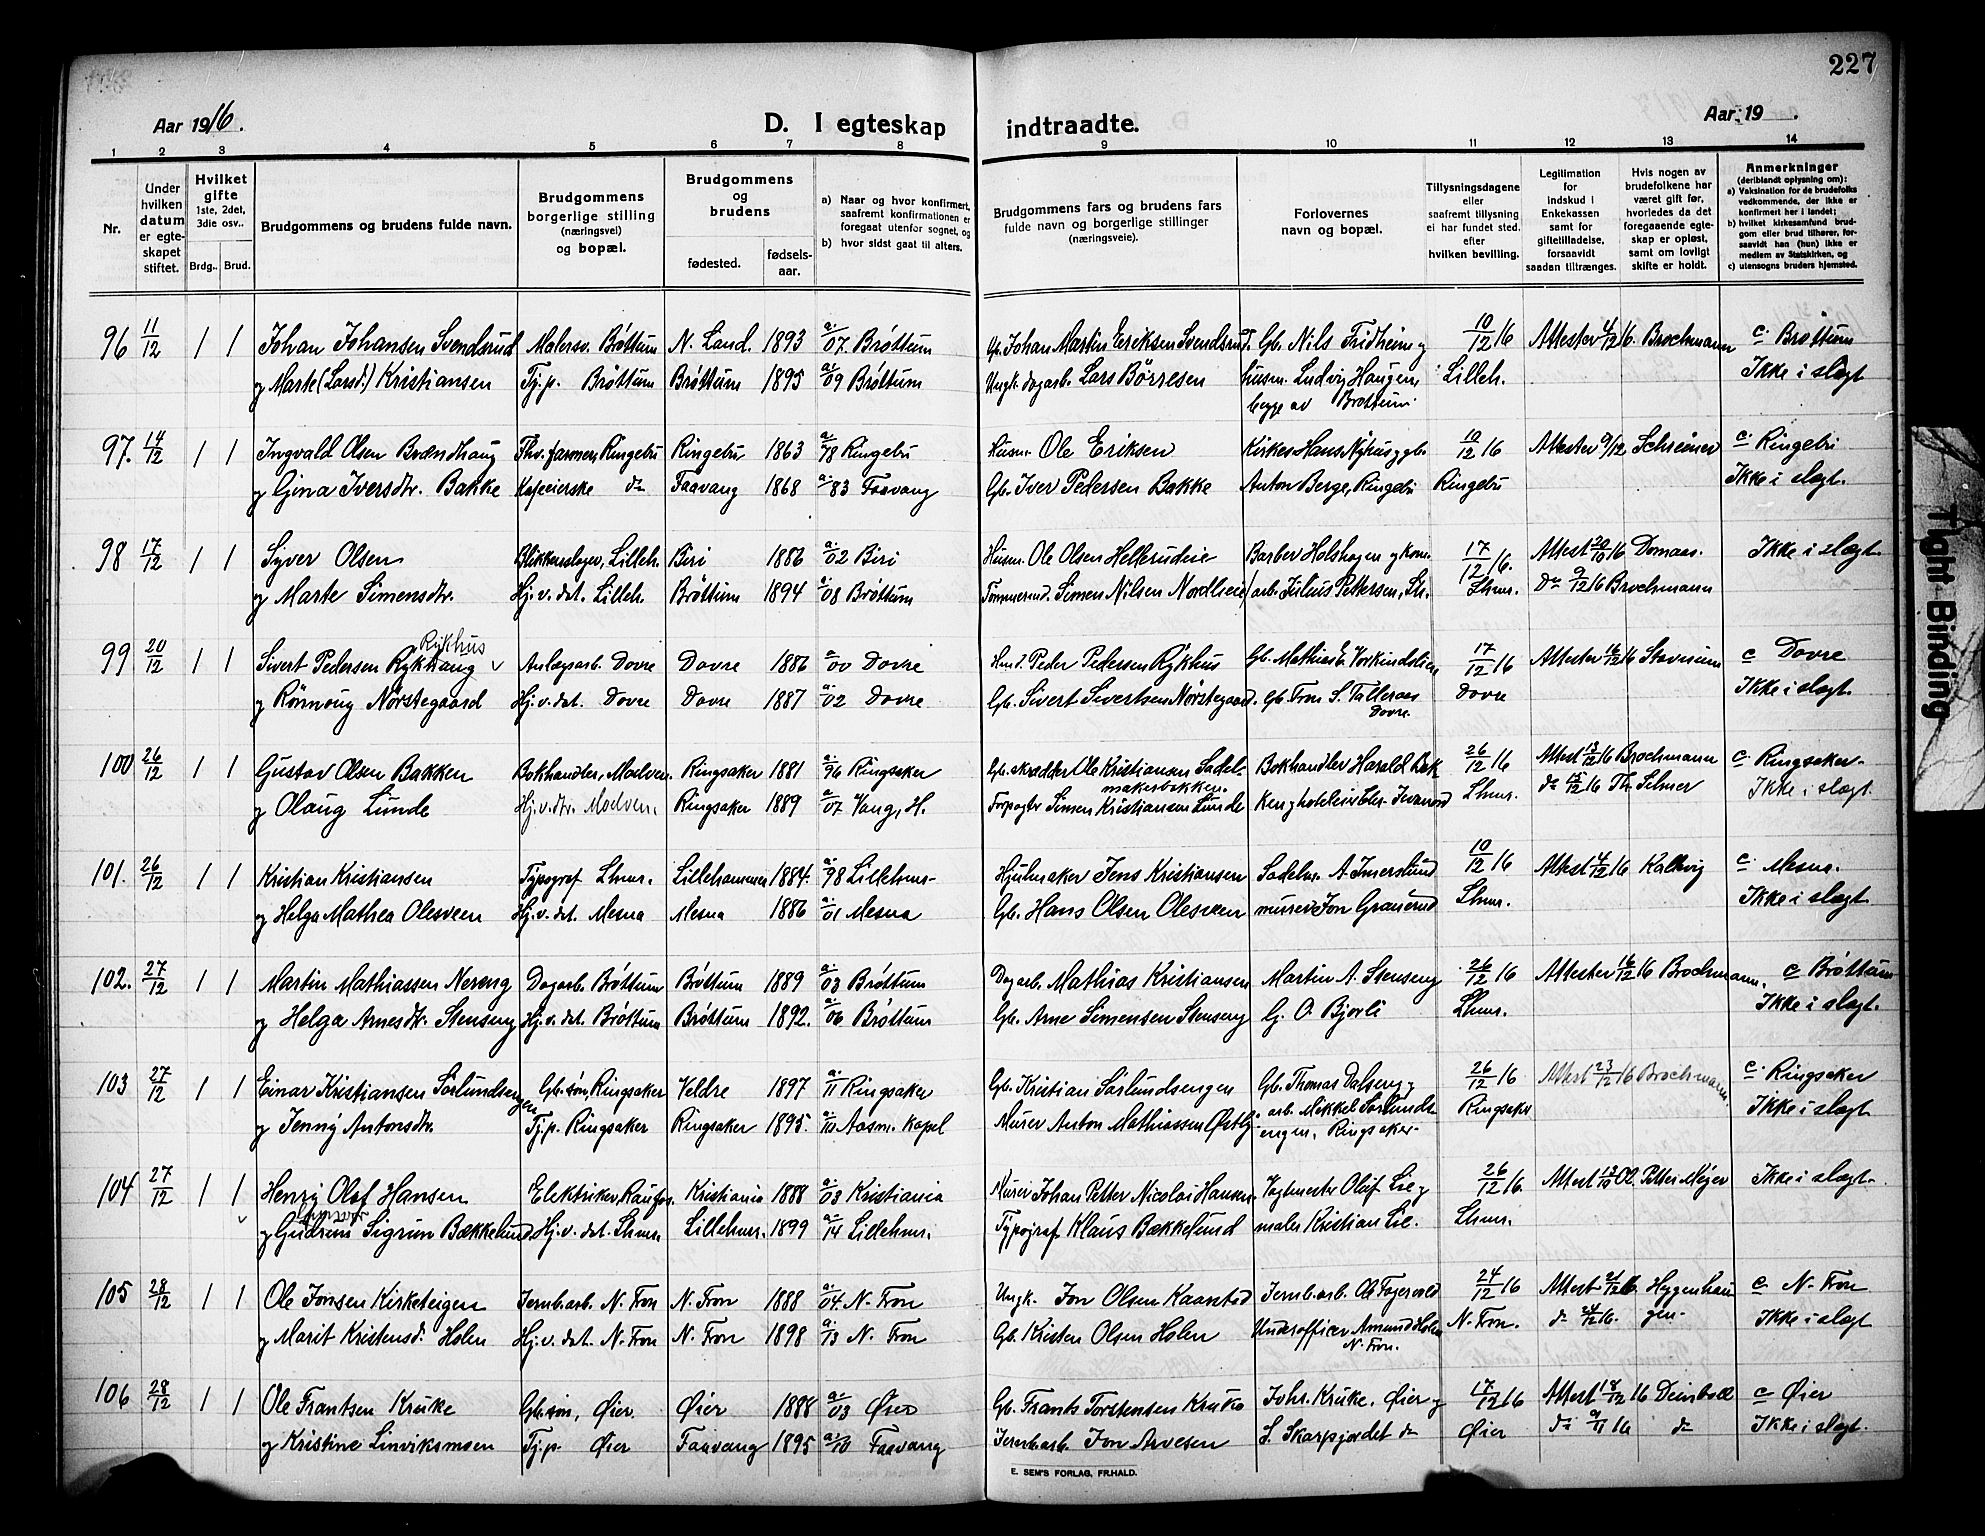 227
Aar 1916.
D. I egteskap indtraadte.
Aar 19 .
1 2 3 4 5 6 7 8 9 10 11 12 13 14
Nr.
Under hvilken datum er egteskapet stiftet.
Hvilket gifte 1ste, 2det, 3die osv.. Brdg.. Brud.
Brudgommens og brudens fulde navn.
Brudgommens borgerlige stilling (næringsvei) og bopæl.
Brudgommens og brudens
fødested. fødselsaar.
a) Naar og hvor konfirmert, saafremt konfirmationen er foregaat utenfor sognet, og
b) hvor sidst gaat til alters.
Brudgommens fars og brudens fars fulde navn og borgerlige stillinger (næringsveie).
Forlovernes navn og bopæl.
Tillysningsdagene eller saafremt tillysning ei har fundet sted, efter hvilken bevilling.
Legitimation for indskud i Enkekassen samt for giftetilladelse, forsaavidt saadan tiltrænges.
Hvis nogen av brudefolkene har været gift før, hvorledes da det foregaaende egteskap er opløst, samt om lovligt skifte er holdt.
Anmerkninger (deriblandt oplysning om):
a) Vaksination for de brudefolks vedkommende, der ikke er konfirmert her i landet;
b) hvilket kirkesamfund brudgom eller brud tilhører, forsaavidt han (hun) ikke er medlem av Statskirken, og
c) utensogns bruders hjemsted.
96 11/12 1 1 Johan Johansen Svendsrud Malersv. Brøttum N. Land. 1893 a. 07. Brøttum Johan Martin Eriksen Svendsrud. Gb. Nils Fridheim og 10/12 16 Attester 4/12 16. Brochmann c. Brøttum
og Marte (Larsd.) Kristiansen Tj.p. Brøttum Brøttum 1895 a/09 Brøttum Ungk. dagarb. Lars Børresen husm. Ludvig Haugen Lilleh. Ikke i slægt
begge av Brøttum.
97. 14/12 1 1 Ingvald Olsen Brændhaug Ringebu Ringebu 1863 a/78 Ringebu Husm. Ole Eriksen Kirkes. Hans Nyhus og gb. 10/12 16 Attester 9/12 Schreiner c. Ringebu
og Gina Iversdtr. Bakke do Faavang 1868 a. 83 Faavang Gb. Iver Pedersen Bakke Anton Berge, Ringebu Ringebu Ikke i slægt.
98 17/12 1 1 Syver Olsen Blikkenslager, Lilleh. Biri 1886 a. 02 Biri Husm. Ole Olsen Hellerudeie Barber Holshagen og kom. 17/12 16. Attest 20/10 16 Domaas. Ikke i slægt.
og Marte Simensdtr. Hj.v.det. Lilleh. Brøttum 1894 a. 08 Brøttum Tømmermd. Simen Nilsen Nordlieeie arb. Julius Pettersen, Lh. Lhmr. Do 9/12 16 Brochmann
Rykhus
99 20/12 1 1 Sivert Pedersen Rykhaug Anlægsarb. Dovre Dovre 1886 a/00 Dovre Peder Pedersen Rykhus Gb. Mathias E. Vorkindslien 17/12 16 Attester 16/12 16 Stavrum c Dovre
og Rønnaug Nørstegaard Hj.v.det. Dovre Dovre 1887 a. 02 Dovre Gb. Sivert Sivertsen Nørstegaard. Gb. Tron S. Talleraas Dovre Ikke i slægt.
Dovre.
100 26/12 1 1 Gustav Olsen Bakken Bokhandler, Moelven. Ringsaker 1881 a/96 Ringsaker Gb. skrædder Ole Kristiansen Sadelmakerbakken. Bokhandler Harald 26/12 16 Attest 13/12 16 Brochmann c. Ringsaker.
og Olaug Lunde Hj.v.det. Moelven. Ringsaker 1889 a/07 Vang, H. Forpagter Simen Kristiansen Lunde Lhmr. do 15/12 16 Th. Selmer Ikke i slægt
101. 26/12 1 1 Kristian Kristiansen Typograf Lhmr. Lillehammer 1884. a. 98 Lillehmr. Hjulmaker Jens Kristiansen Sadelm. A. Imerslund 10/12 16 Attest 4/12 16 Kallevig c. Mesna.
og Helga Mathea Olesveen Hj.v.det. Mesna Mesna 1886 a. 01 Mesna Gb. Hans Olsen Olesveen murer Jon Granerud Lhmr. Ikke i slægt.
102. 27/12 1 1 Martin Mathiassen Nereng Dagarb. Brøttum Brøttum 1889 a. 03 Brøttum Dagarb. Mathias Kristiansen Martin A. Stenseng 26/12 16 Attester 16/12 16 Brochmann. c Brøttum
og Helga Arnesdtr. Stenseng Hj.v.det. Brøttum Brøttum 1892. a. 06 Brøttum Gb. Arne Simensen Stenseng G. O. Bjørli Lhmr. Ikke i slægt.
103 27/12 1 1 Einar Kristiansen Sørlundsengen Gb.søn, Ringsaker Veldre 1897 a. 11 Ringsaker Gb. Kristian Sørlundsengen Gb. Thomas Dalseng og 26/12 16 Attest 23/12 16 Brochmann. c. Ringsaker
og Jenny Antonsdtr. Tj.p. Ringsaker Ringsaker 1895. a. 10 Aasm. kapel Murer Anton Mathiassen Østby arb. Mikkel Sørlundsengen, Ringsaker. Ringsaker Ikke i slægt
104 27/12 1 1 Henry Olaf Hansen Elektriker, Raufos. Kristiania 1888 a. 03 Kristiania Murer Johan Petter Nicolai Hansen. Vagtmester Oluf Lie og 26/12 16. Attest 13/10 Ol. Petter Meyer Ikke i slægt.
og Gudrun Sigrun Bækkelund Hj.v.det. Lhmr. Lillehmr. 1899 a. 14 Lillehmr. Typograf Klaus Bækkelund maler Kristian Lie. Lhmr.
105 28/12 1 1 Ole Jonsen Kirketeigen Jernb.arb. N. Fron N. Fron 1888 a. 04 N. Fron Ungk. Jon Olsen Kaanstad Jernb.arb. Ol. Fagervold 24/12 16 Attest 21/12 16. Heggenhaugen. c. N. Fron
og Marit Kristensd. Holen Hj.v.det. N. Fron N. Fron 1898 a. 13 N. Fron Gb. Kristen Olsen Holen Underofficer Amund Holen N. Fron. N. Fron. do 21/12 16. Ikke i slægt
106 28/12 1 1 Ole Frantsen Kruke Gb.søn, Øier. Øier 1888 a. 03 Øier Gb. Frants Torstensen Kruke Johs. Kruke, Øier og 17/12 16 Attest 18/12 16 Deinboll c Øier
og Kristine Linviksmoen Tj.p. Øier Faavang 1895 a. 10 Faavang Jernb.arb. Jon Arvesen S. Skarpjordet do Øier do 9/11 16 do Ikke i slægt.
E. SEM'S FORLAG, FR.HALD.
Tight Binding